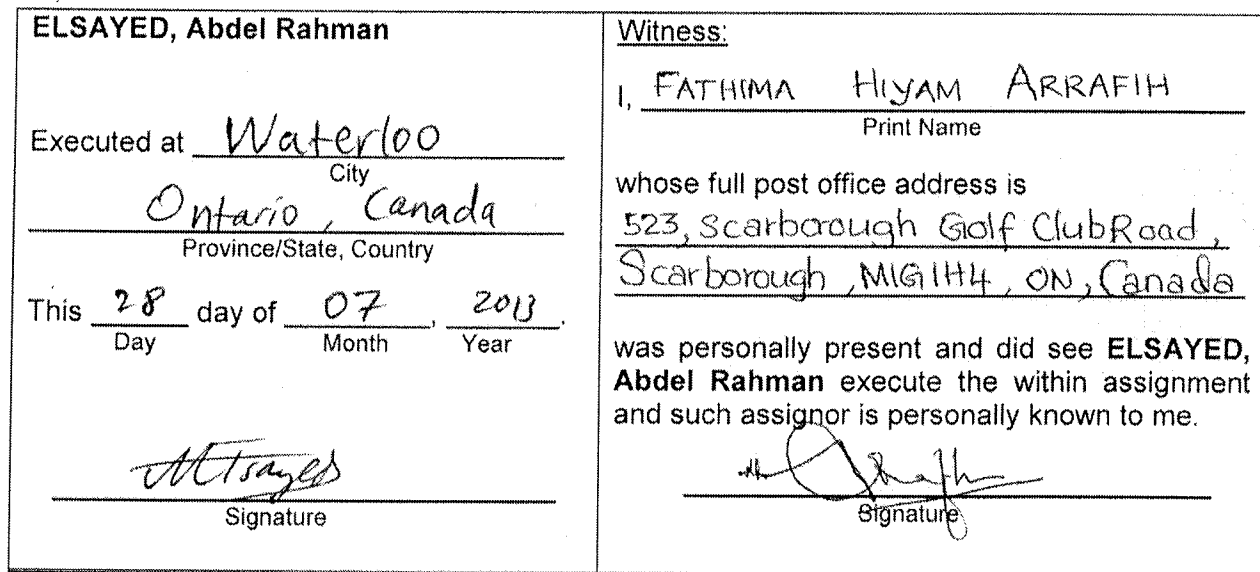 ELSAYED, Abdel Rahman
Executed at Waterloo
City
Ontario, Canada
Province/State, Country
This 28 day of 07, 2013.
Day Month Year
Signature
Witness:
I, FATHIMA HIYAM ARRAFIH
Print Name
whose full post office address is
523, Scarborough Golf Club Road,
Scarborough, M1G1H4, ON, Canada
was personally present and did see ELSAYED,
Abdel Rahman execute the within assignment
and such assignor is personally known to me.
Signature